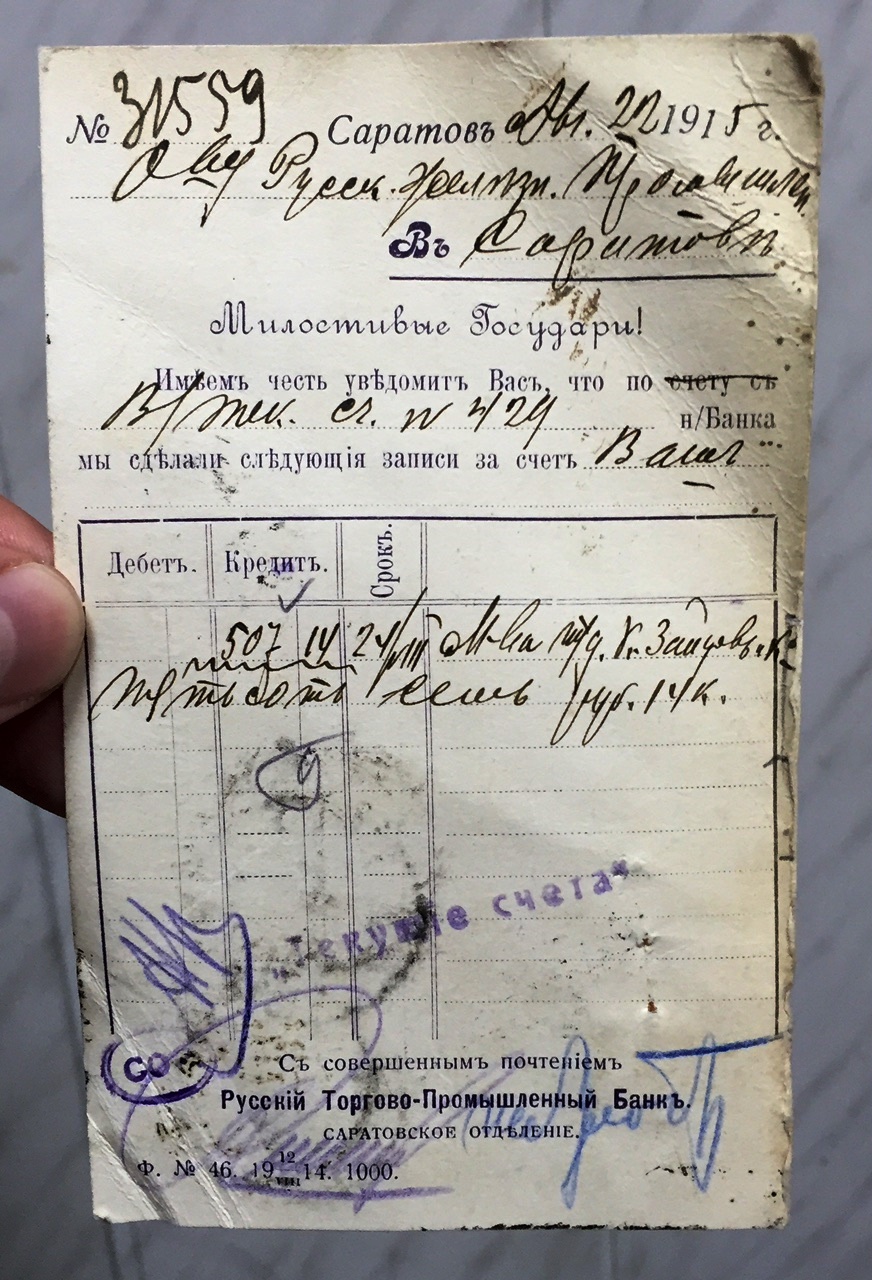 № 31559 Саратовъ Авг. 22 1915 г.
Русск.
Въ Саратовѣ
Милостивые Государи!
Имѣемъ честь увѣдомить Васъ, что по счету съ
В/тек. сч. № 429 н/Банка
мы сдѣлали слѣдующія записи за счетъ Вашъ
Дебетъ. Кредитъ. Срокъ.
507 14 24/VIII
Пятьсотъ семь руб. 14 к.
„Текущіе счета“
Съ совершеннымъ почтеніемъ
Русскій Торгово-Промышленный Банкъ.
САРАТОВСКОЕ ОТДѢЛЕНІЕ.
Ф. № 46. 19 12/VIII 14. 1000.